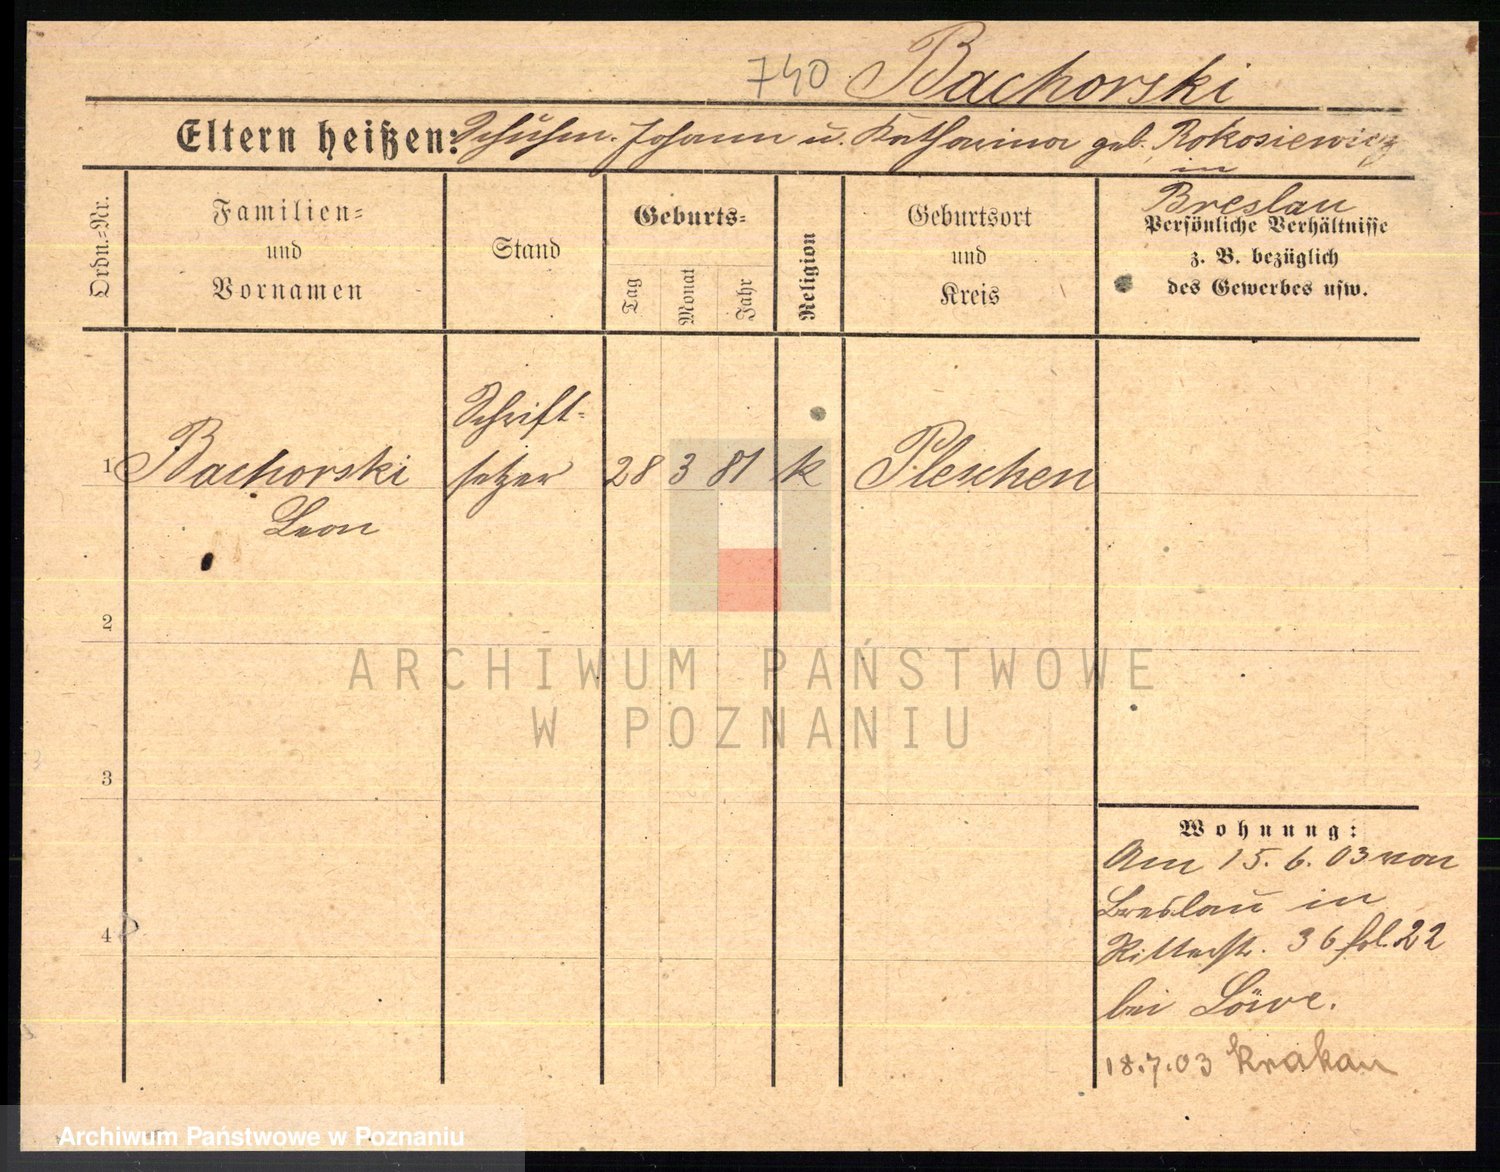 740 Bachorski
Eltern heißen: Schuhm. Johann u. Katharina geb. Rokosiewicz
in
Breslau
Ordn.-Nr.
Familien-
und
Vornamen
Stand
Geburts-
Tag
Monat
Jahr
Religion
Geburtsort
und
Kreis
Persönliche Verhältnisse
z. B. bezüglich
des Gewerbes usw.
Schrift-
1 Bachorski setzer 28 3 81 k Pleschen
Leon
2
3
4
Wohnung:
Am 15. 6. 03 von
Breslau in
Ritterstr. 36 22
bei Löwe.
18.7.03 Krakau
ARCHIWUM PAŃSTWOWE
W POZNANIU
Archiwum Państwowe w Poznaniu